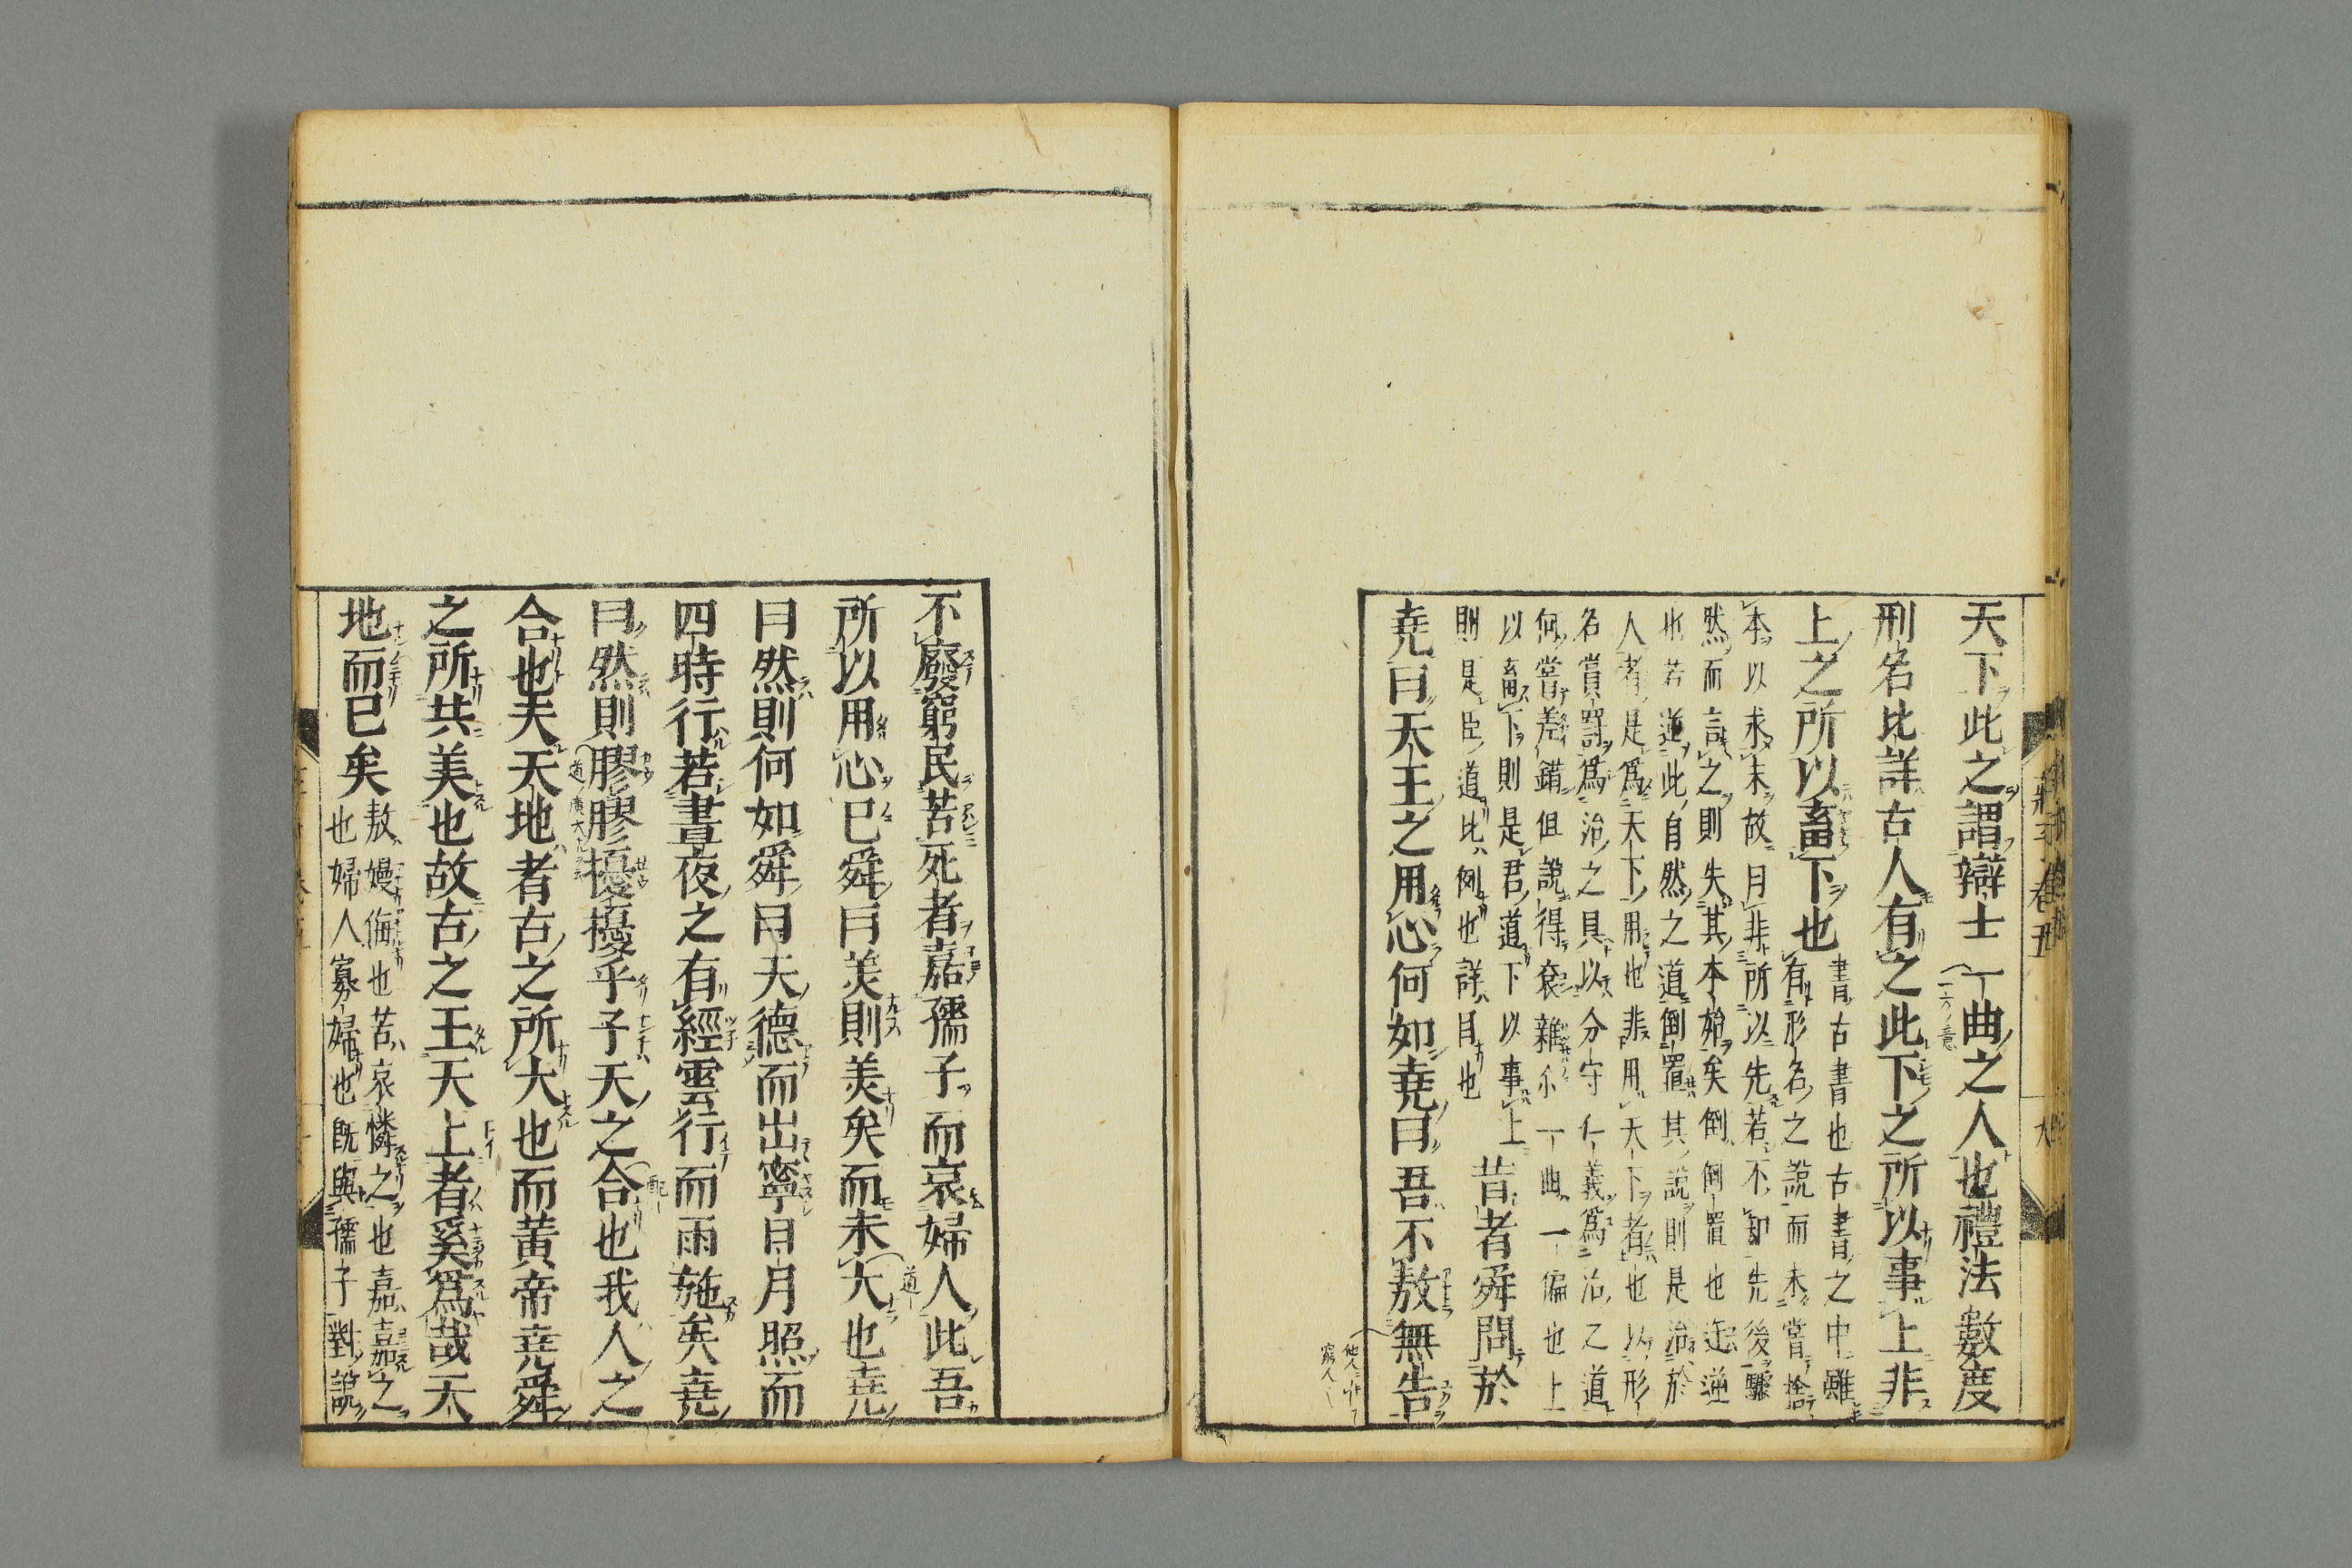 天下此之謂辯士一曲之人也禮法數度
刑名比詳古人有之此下之所以事上非
上之所以畜下也
書古書也古書之中雖
有形名之說而未嘗捨
本以求末故曰非所以先若不知先後驟
然而言之則失其本始矣倒倒置也迕逆
也若逆此自然之道倒置其說則是治於
人者是爲天下用也非用天下者也以形
名賞罰爲治之具以分守仁義爲治之道
何嘗差錯但說得衮雜尓一曲一偏也上
以畜下則是君道下以事上
則是臣道比例也詳目也
昔者舜問於
堯曰天王之用心何如堯曰吾不敖無告
不廢窮民苦死者嘉孺子而哀婦人此吾
所以用心已舜曰美則美矣而未大也堯
曰然則何如舜曰天德而出寧日月照而
四時行若晝夜之有經雲行而雨施矣堯
曰然則膠膠擾擾乎子天之合也我人之
合也夫天地者古之所大也而黄帝堯舜
之所共美也故古之王天上者奚爲哉天
地而已矣
敖嫚侮也苦哀憐之也嘉嘉之
也婦人寡婦也既與孺子對說